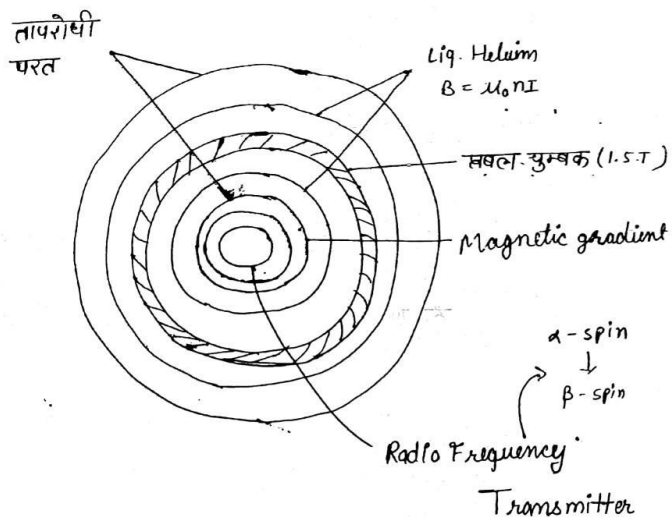 तापरोधी
परत
Liq. Heluim
B = μ₀nI
सबल चुम्बक (1.5T)
Magnetic gradient
α-spin
↓
β-spin
Radio Frequency
Transmitter